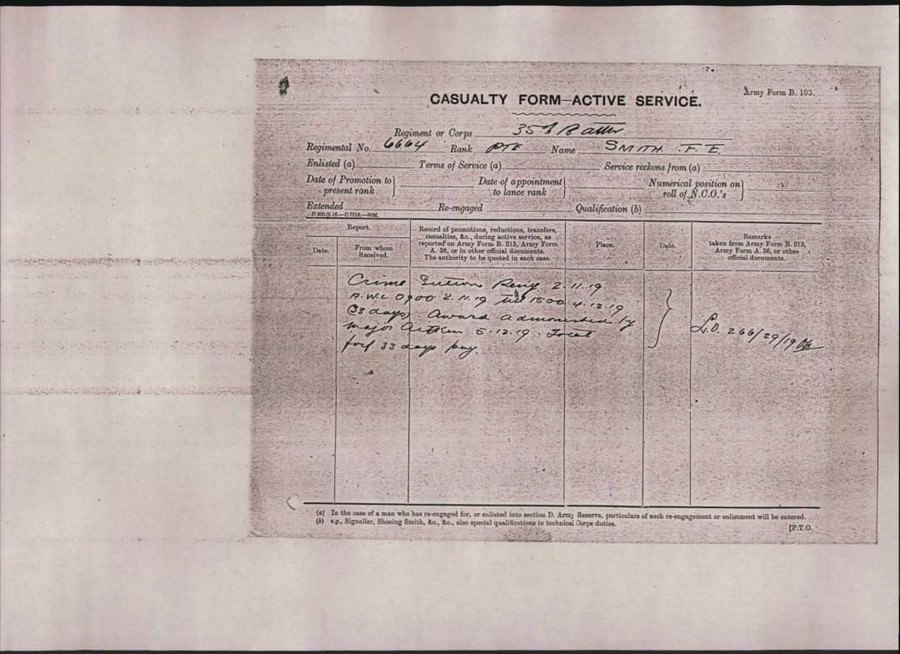 Army Form B. 103.
CASUALTY FORM—ACTIVE SERVICE.
Regiment or Corps 35th Battn
Regimental No. 6664 Rank PTE Name SMITH F. E.
Enlisted (a) Terms of Service (a) Service reckons from (a)
Date of Promotion to present rank } Date of appointment to lance rank } Numerical position on roll of N.C.O.'s }
Extended Re-engaged Qualification (b)
Report.
Date.
From whom Received.
Record of promotions, reductions, transfers,
casualties, &c., during active service, as
reported on Army Form B. 213, Army Form
A. 36, or in other official documents.
The authority to be quoted in each case.
Place.
Date.
Remarks
taken from Army Form B. 213,
Army Form A. 36, or other
official documents.
Crime Sutton Veny 2.11.19
A.W.L 0900 2.11.19 till 1500 4.12.19
(33 days) Award Admonished by
Major 5.12.19. Total
forf 33 days pay.
L.O. 266/29/19
(a) In the case of a man who has re-engaged for, or enlisted into section D. Army Reserve, particulars of such re-engagement or enlistment will be entered.
(b) e.g., Signaller, Shoeing Smith, &c., &c., also special qualifications in technical Corps duties.
[P.T.O.